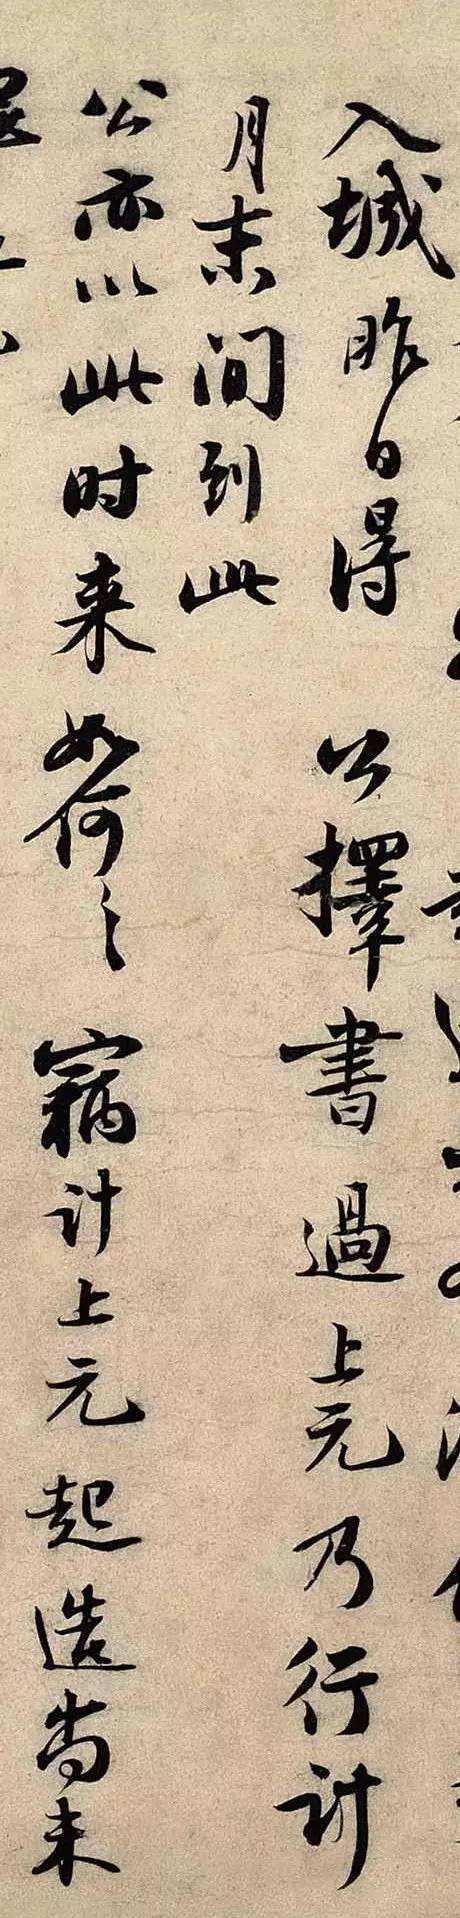 入城昨日得 公擇書過上元乃行計
月末間到此
公亦以此時来如何〻 竊計上元起造尚未